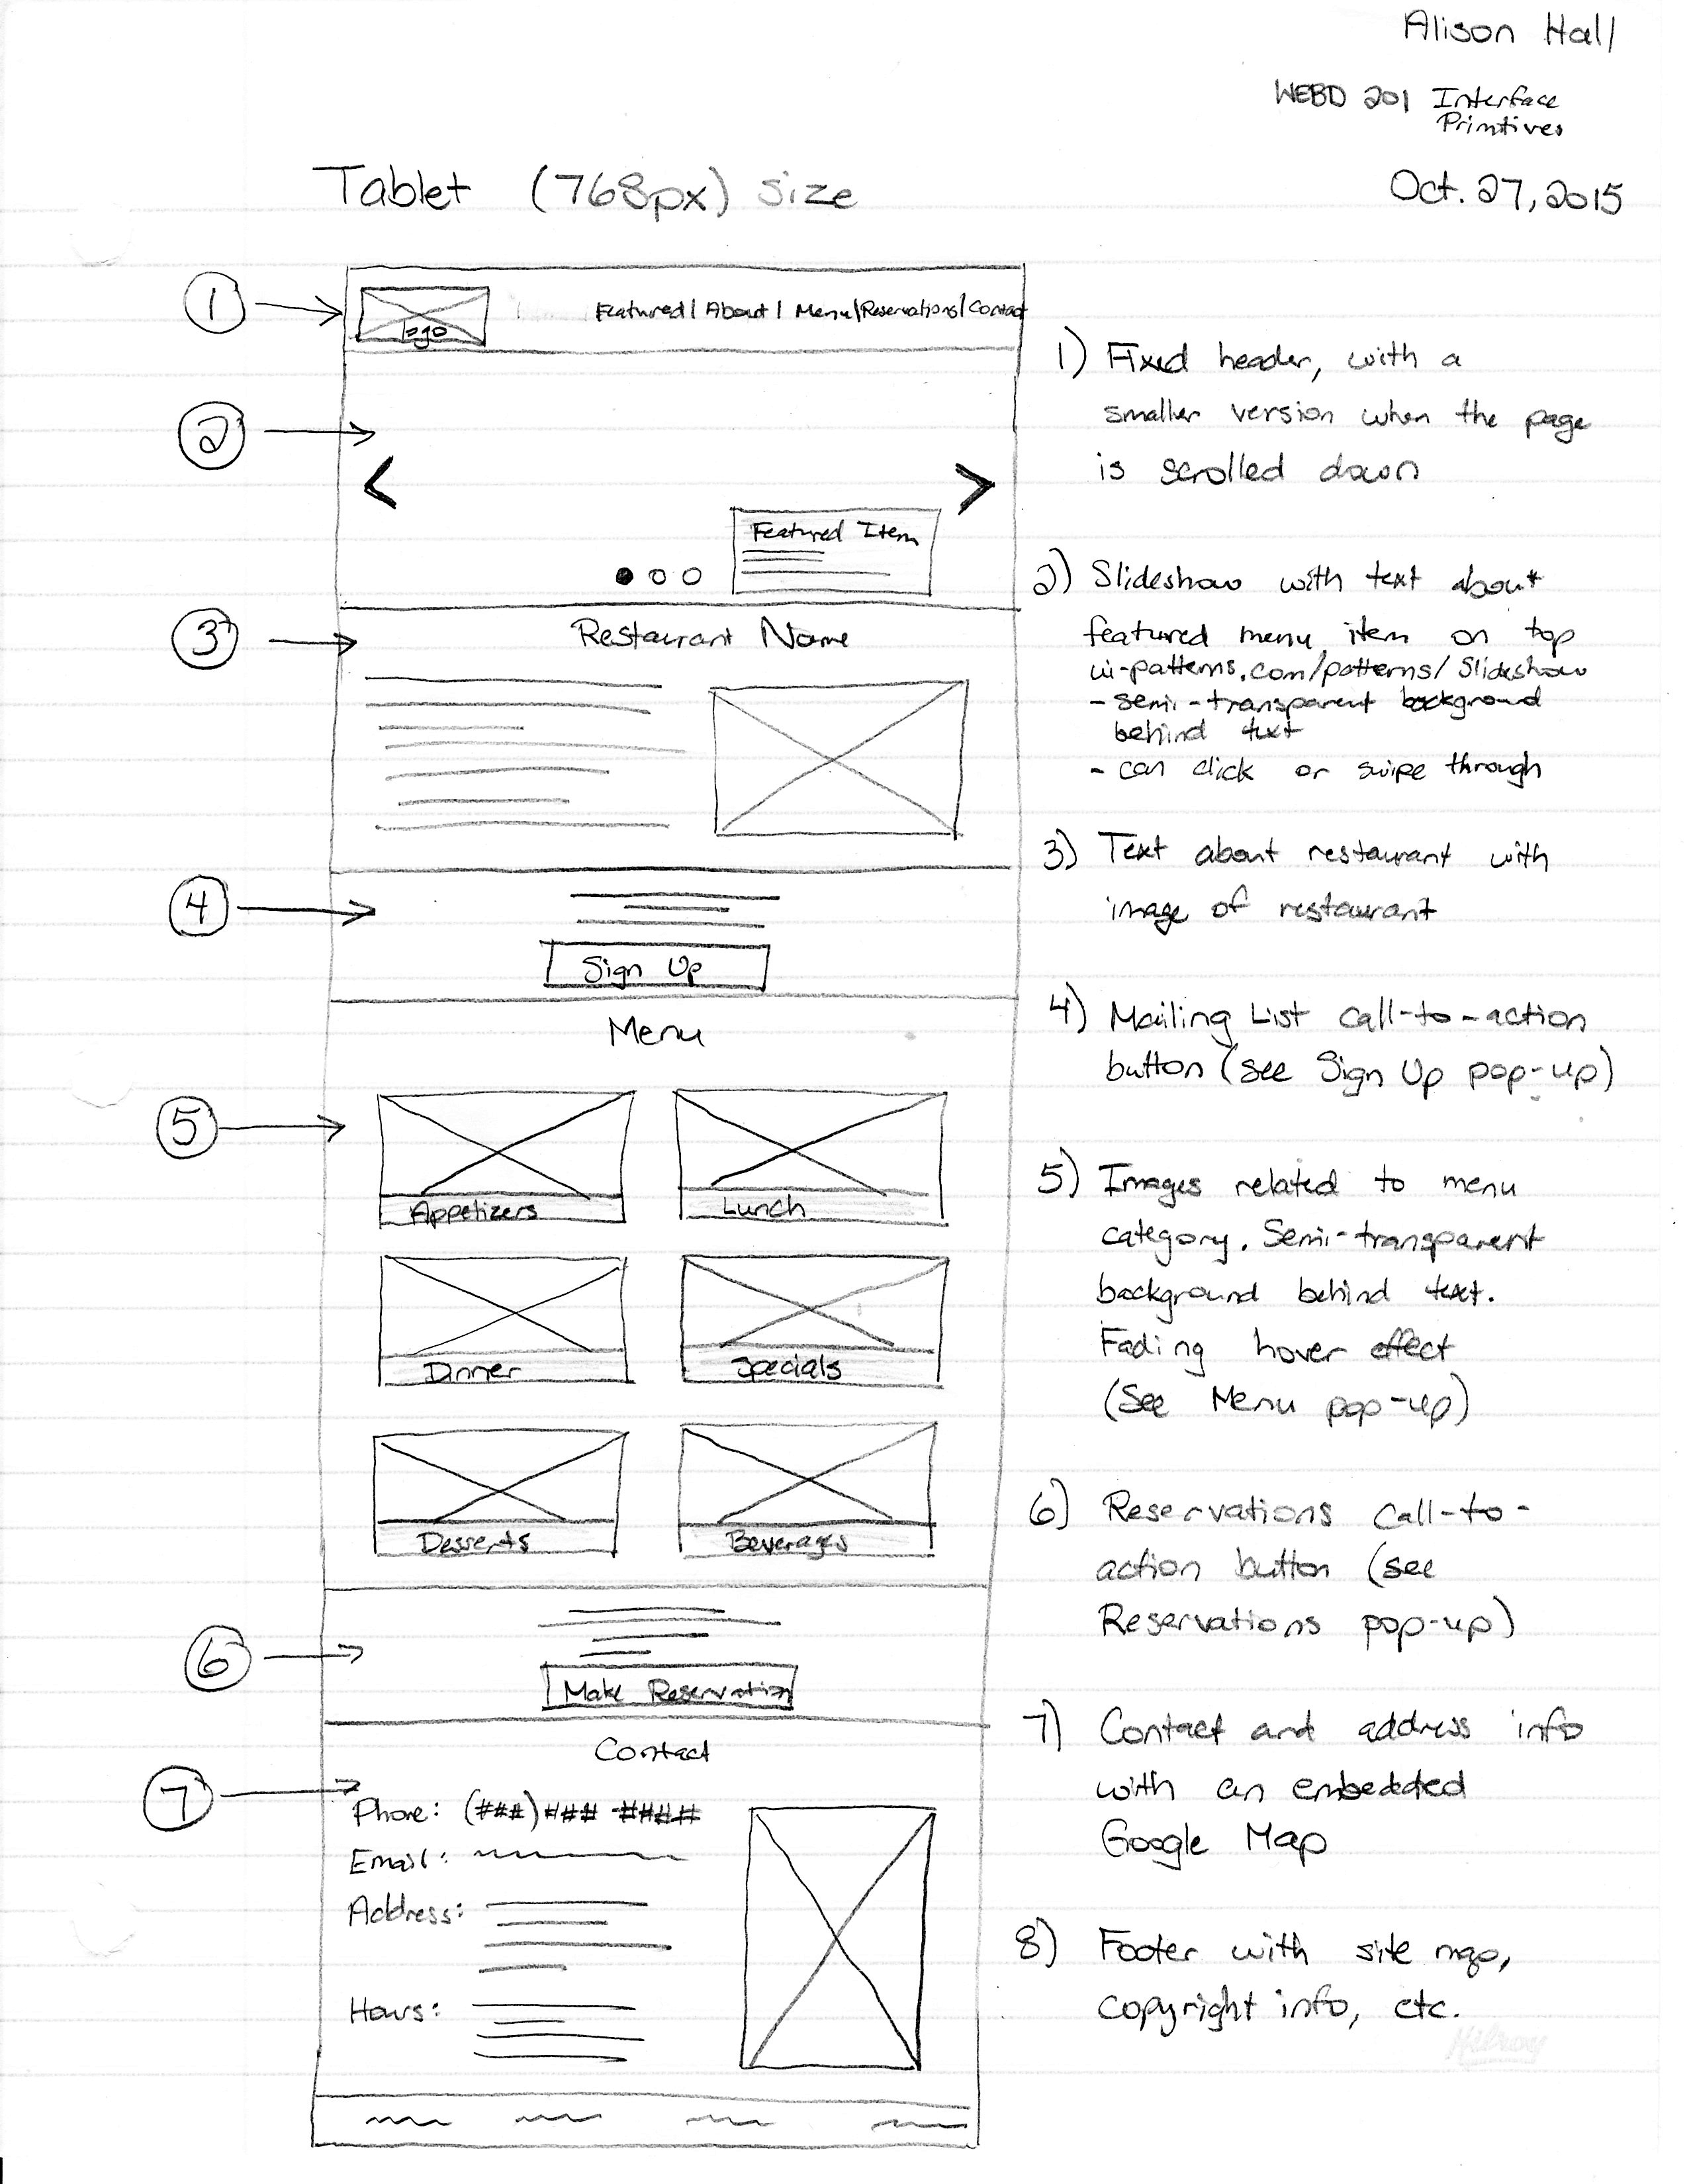 Alison Hall
WEBD 201 Interface
Primtives
Oct. 27, 2015
Tablet (768px) Size
1
logo
Featured | About | Menu | Reservations | Contact
2
< >
Featured Item
3
Restaurant Name
4
Sign Up
Menu
5
Appetizers
Lunch
Dinner
Specials
Desserts
Beverages
6
Make Reservation
Contact
7
Phone: (###) ### - ####
Email:
Address:
Hours:
1) Fixed header, with a
smaller version when the page
is scrolled down
2) Slideshow with text about
featured menu item on top
ui-patterns.com/patterns/Slideshow
- semi-transparent background
behind text
- can click or swipe through
3) Text about restaurant with
image of restaurant
4) Mailing List call-to-action
button (see Sign Up pop-up)
5) Images related to menu
category. Semi-transparent
background behind text.
Fading hover effect
(See Menu pop-up)
6) Reservations Call-to-
action button (see
Reservations pop-up)
7) Contact and address info
with an embedded
Google Map
8) Footer with site map,
copyright info, etc.
Hilroy